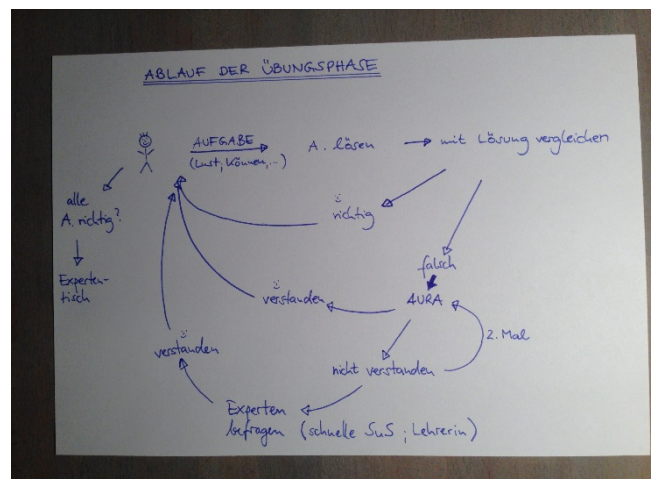 ABLAUF DER ÜBUNGSPHASE
AUFGABE
(Lust, Können,...)
A. lösen
mit Lösung vergleichen
alle
A. richtig?
Experten-
tisch
richtig
falsch
4URA
verstanden
2. Mal
verstanden
nicht verstanden
Experten
befragen (schnelle SuS ; Lehrerin)